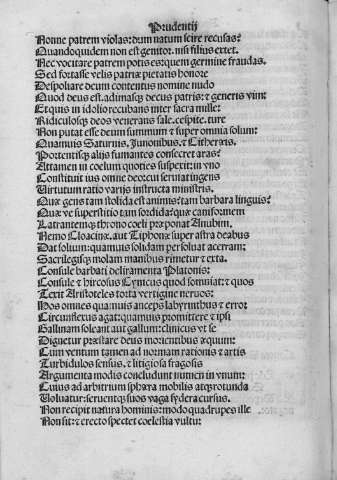 Prudentij
Nonne patrem violas: dum natum scire recusas?
Quandoquidem non est genitor. nisi filius extet.
Nec vocitare patrem potis es: quem germine fraudas.
Sed fortasse velis patriæ pietatis honore
Despoliare deum contentus nomine nudo
Quod deus est. adimasqȝ decus patris: et generis vim:
Et quis in idolio recubans inter sacra mille:
Ridiculosqȝ deos venerans sale. cespite. ture
Non putat esse deum summum et super omnia solum:
Quamuis Saturnis, Junonibus, et Citheræis,
Portentisqȝ alijs fumantes consecret aras?
Attamen in coelum quoties suspexit: in vno
Constituit ius omne deo: cui seruiat ingens
Virtutum ratio varijs instructa ministris.
Quæ gens tam stolida est animis? tam barbara linguis?
Quæ ve superstitio tam sordida? quæ caniformem
Latrantemqȝ throno coeli præponat Anubim.
Nemo Cloacinæ, aut Eiphonæ super astra deabus
Dat solium: quamuis solidam persoluat acerram:
Sacrilegisqȝ molam manibus rimetur et exta.
Consule barbati deliramenta Platonis:
Consule et hircosus Cynicus quod somniat: et quos
Texit Aristoteles torta vertigine neruos:
Hos omnes quamuis anceps labyrinthus et error
Circumflexus agat: quamuis promittere et ipsi
Gallinam soleant aut gallum: clinicus vt se
Dignetur præstare deus morientibus æquum:
Cum ventum tamen ad normam rationis et artis
Turbidulos sensus. et litigiosa fragosis
Argumenta modis concludunt numen in vnum:
Cuius ad arbitrium sphæra mobilis atqȝ rotunda
Voluatur: seruentqȝ suos vaga sydera cursus.
Non recipit natura hominis: modo quadrupes ille
Non sit: et erecto spectet coelestia vultu: